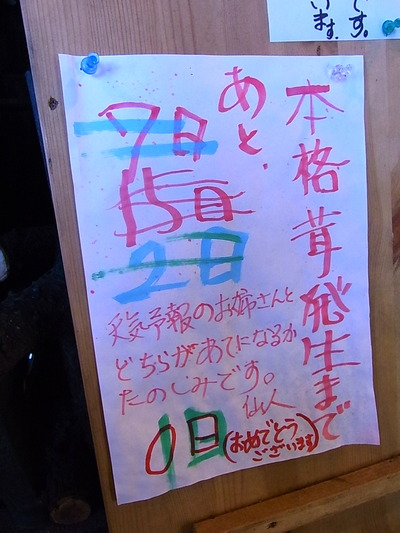 です。
います。
本格茸発生まで
あと、
7日
15日
2日
天気予報のお姉さんと
どちらがあてになるか
たのしみです。
仙人
0日(おめでとう
ございます)